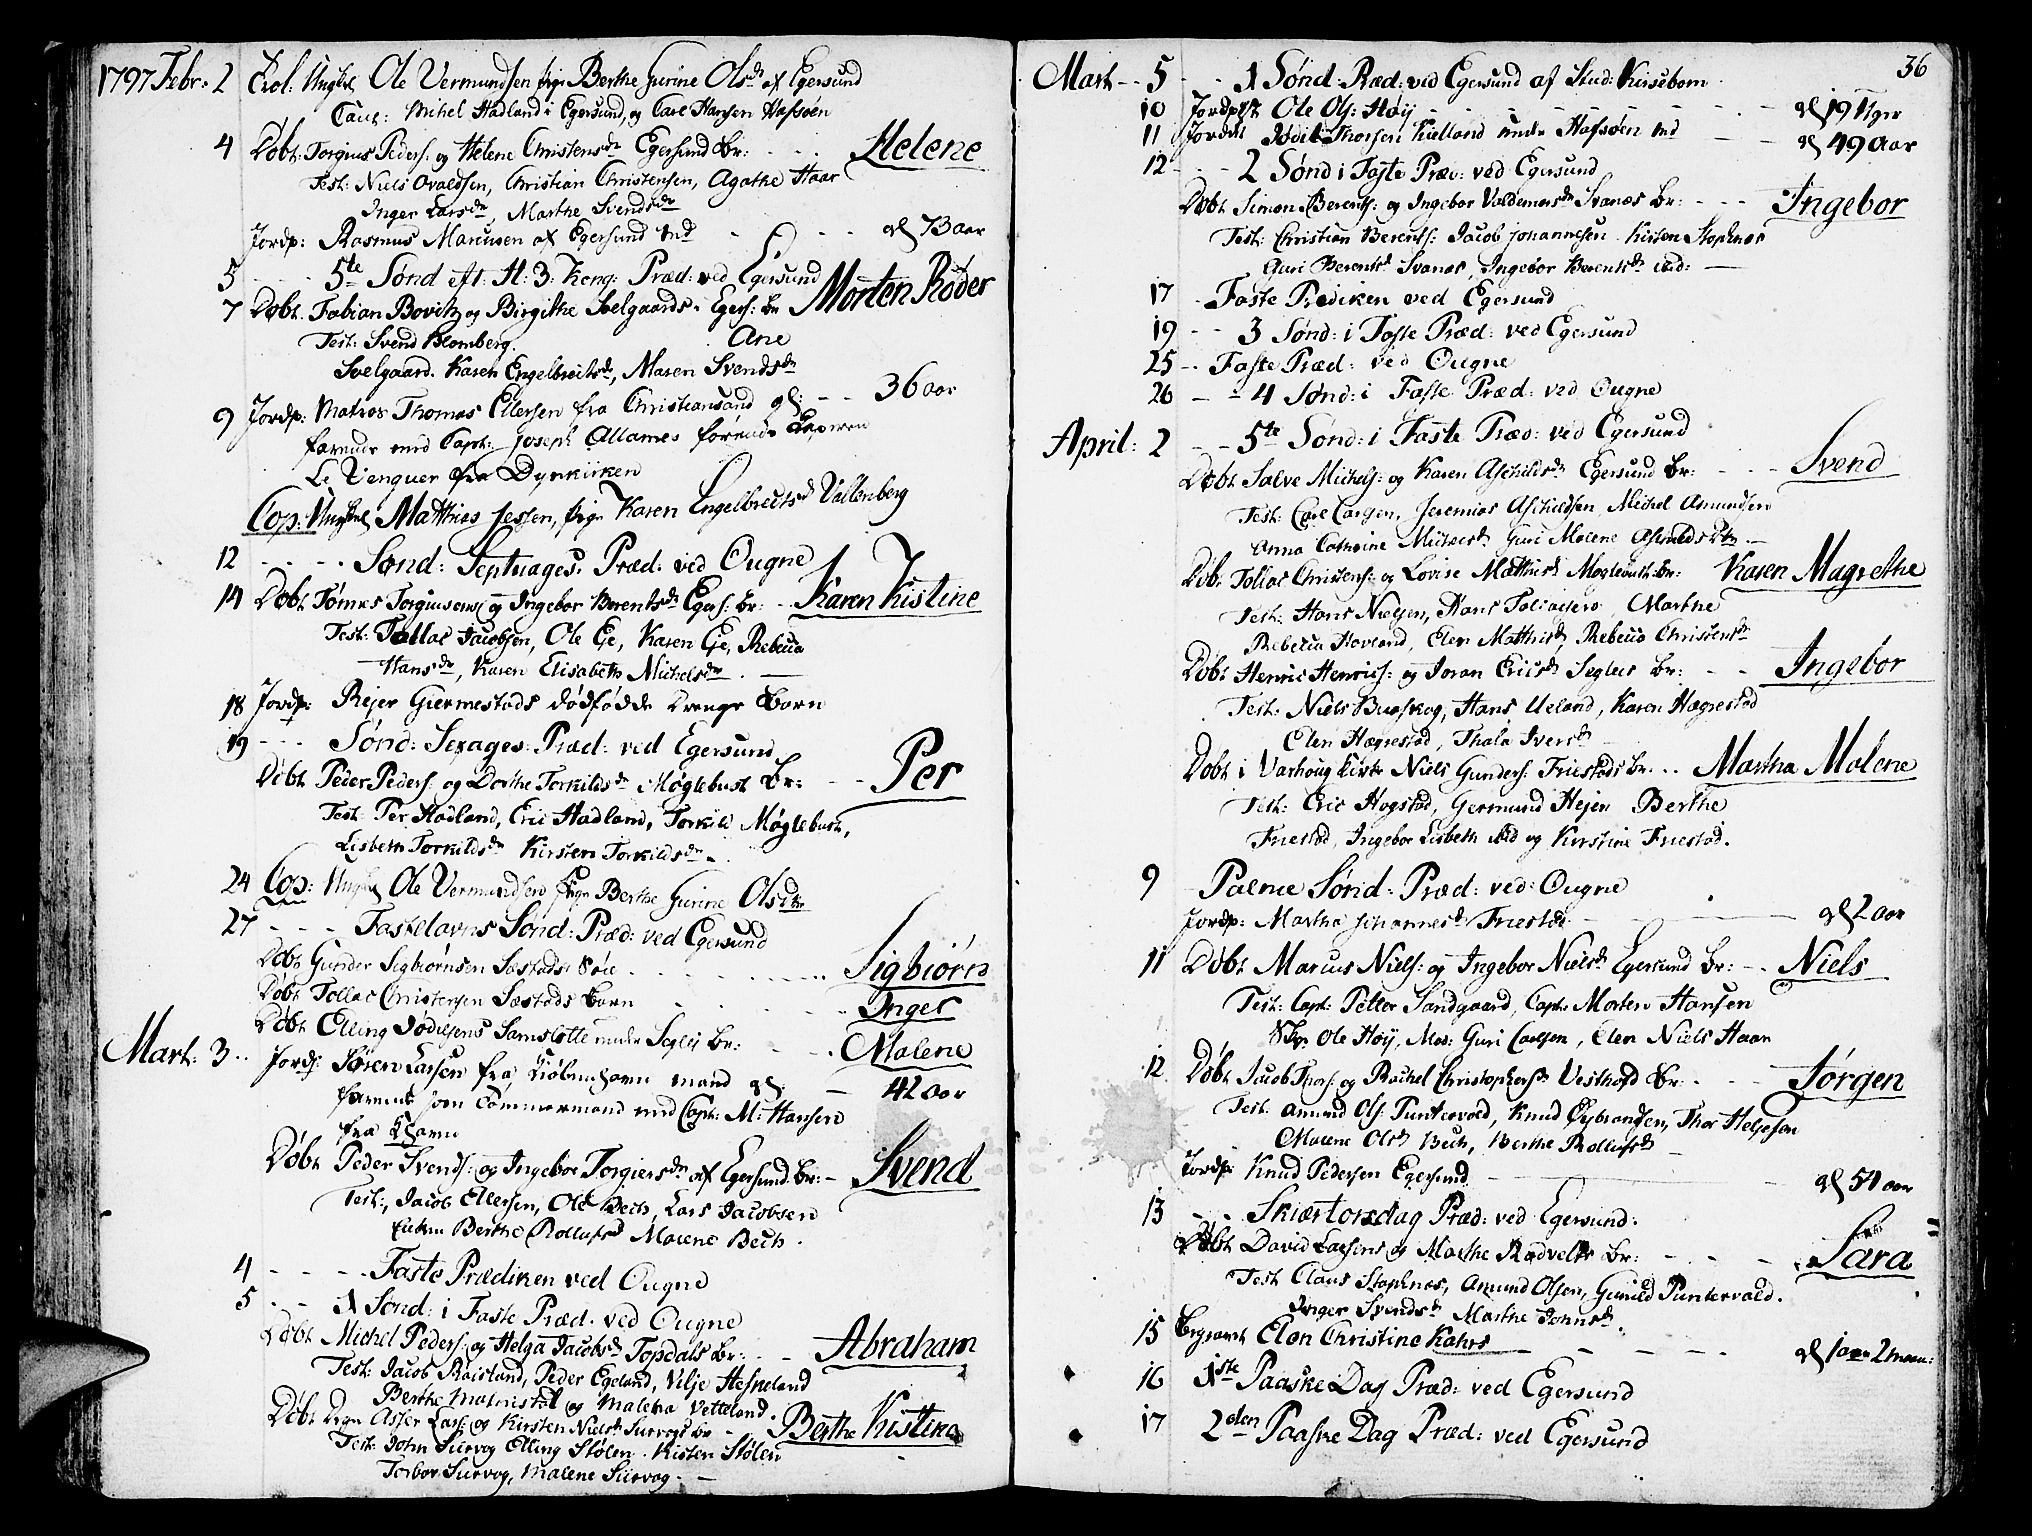 1797 Febr: 2 Trol: Ungkl Ole Vermundsen pige Berthe Gurine Olsdr af Egersund
Caut: Michel Hadland i Egersund, og Carl Hansen Hafsøen
4 Døbt Torgius Peders: og Helene Christensdr Egersund Br: Helene
Test: Niels Ovaldsen, Christian Christensen, Agathe Haar
Inger Larsdr, Marthe Svendsdr
Jordp: Rasmus Marcusen af Egersund gl 73 aar
5 5te Sønd eft: H: 3: Kong: Præd: ved Egersund
7 Døbt Fabian Bovitz og Birgithe Svelgaards Egers: Br Morten Røder
Test: Svend Blomberg. Ane
Svelgaard. Karen Engelbreitsdr, Maren Svendsdr
9 Jordp: Matros Thomas Ellersen fra Christiansand gl: 36 aar
farende med Capt: Joseph Allames førende
Le Venguer fra Dynkirken
Cop: Ungkl Matthias Jessen, pige Karen Engelbredtsd Vallenberg
12 Sønd: Septuages: Præd: ved Ougne
14 Døbt Tørnes Torgiusens og Ingebor Berentsdr Egers: Br: Karen Kistine
Test: Tollac Jacobsen, Ole Eie, Karen Eie, Rebecca
Hansdr, Karen Elisabeth Michelsdr
18 Jordp: Rejer Giermestads dødfødde Drenge Barn
19 Sønd: Sexages: Præd: ved Egersund
Døbt Peder Peders: og Dorthe Torkildsdr Møglebust Br: Per
Test: Per Hadland, Eric Hadland, Torkild Møglebust,
Lisbeth Torkildsdr Kirsten Torkildsdr
24 Cop: Ungkl Ole Vermundsen pige Berthe Gurine Olsdtr
27 Fastelavns Sønd: Præd: ved Egersund
Døbt Gunder Sigbiørnsen Sæstads Søn Sigbiørn
Døbt Tollac Christensen Sæstads Barn Inger
Døbt Elling Jødilsens Samslotte under Seglei Br: Malene
Mart: 3 Jordp: Søren Larsen fra Kiøbenhavn mand gl 42 aar
farende som Tømmermand med Capt: M: Hansen
fra Khavn
Døbt Peder Svends: og Ingebor Torgiersdr af Egersund Br: Svend
Test: Jacob Ellersen, Ole Bech, Lars Jacobsen
Berthe Rollufsd Malene Bech
4 Faste Prædiken ved Ougne
5 1 Sønd: i Faste Præd: ved Ougne
Døbt Michel Peders: og Helga Jacobsdr Topdals Br: Abraham
Test: Jacob Raisland, Peder Egeland, Vilje Hesneland
Berthe Malmistel og Malena Vetteland.
Døbt Asser Lars: og Kirsten Nielsdr Survogs Br Berthe Kistina
Test: John Survog Elling Stølen. Kisten Stølen
Torbor Survog, Malene Survog.
36
Mart 5 1 Sønd: Præd: ved Egersund af Stud: Kirseborn
10 Jordp: Ole Ols: Høiy gl 19 Uger
11 Jordet Bolt Thorsen Kielland under Hafsøen gl 49 aar
12 2 Sønd i Faste Præd: ved Egersund
Døbt Simon Berents: og Ingebor Valdemarsdr Svanæs Br: Ingebor
Test: Christian Berents: Jacob Johannesen. Kisten Stopknæs
Guri Berentsd Svanæs, Ingebor Berentsdr ibid:
17 Faste Prediken ved Egersund
19 3 Sønd: i Faste Præd: ved Egersund
25 Faste Præd: ved Ougne
26 4 Sønd: i Faste Præd: ved Ougne
April: 2 5te Sønd: i Faste Præd: ved Egersund
Døbt Salve Michels: og Karen Aschildsdr Egersund Br: Svend
Test: Carl Largen, Jeremias Aschildsen, Michel Asmundsen
Anna Cathrine Michelsd Guri Malene Asmundsdtr
Døbt Tollac Christens: og Lovise Matthisd Møglebust Br: Karen Magrethe
Test: Hans Nielsen, Hans Marthe
Rebecca Hovland, Elen Matthisd, Rebecca Christensdr
Døbt Henric Henrics: og Joran Ericsd Segleis Br: Ingebor
Test: Niels Buaskog, Hans Ueland, Karen Hægrestad
Elen Hægrestad, Thala Iversd
Døbt i Varhoug Kirke Niels Gunders: Friestads Br: Martha Malene
Test: Eric Hogstad, Germund Hejen Berthe
Friestad, Ingebor Lisbeth ibid og Kirstine Friestad.
9 Palme Sønd: Præd: ved: Ougne
Jordp: Martha Johannesd Friestad gl 2 aar
11 Døbt Marcus Niels: og Ingebor Nielsd Egersund Br: Niels
Test: Capt: Petter Sandgaard, Capt: Morten Hansen
Skp: Ole Høiy, Mad: Guri Carlsen, Elen Niels Haar
12 Døbt Jacob Thors: og Rachel Christophersd Vesthofd Br: Jørgen
Test: Amund Ols: Puntervold, Knud Eybrandsen, Thor Helgesen
Malene Olsd Bech, Berthe Rollufsd
Jordp: Knud Pedersen Egersund gl 54 aar
13 Skiærtorsdag Præd: ved Egersund:
Døbt David Larsens og Marthe Rødvelts Br: Sara
Test Claus Stopknæs, Amund Olsen, Gunild Puntervold.
Inger Svendsd Marthe Johnsd
15 Begravet Elen Christine Kahrs gl 1 aar 2 maan:
16 1ste Paaske Dag Præd: ved Egersund
17 2den Paaske Dag Præd: ved Egersund